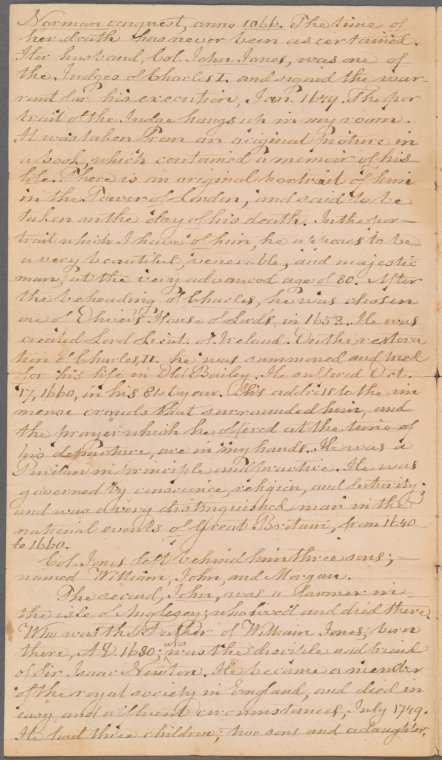 Norman conquest, anno 1066. The time of
her death has never been ascertained.
Her husband, Col. John Jones, was one of
the Judges of Charles I. and signed the war-
rant for his execution, Jan. 1649. The por
trait of the Judge hangs up in my room.
It was taken from an original picture in
a book, which contained a memoir of his
life. There is an original portrait of him
in the Tower of London, and said to be
taken on the day of his death. In the por-
trait which I have of him, he appears to be
a very beautiful, venerable, and majestic
man, at the very advanced age of 80. After
the beheading of Charles, he was chosen
one of Oliver's House of Lords, in 1653. He was
created Lord Lieut. of Ireland. On the restora
tion of Charles II. he was summoned and tried
for his life in Old Bailey. He suffered Oct.
17, 1660, in his 81st year. His address to the im
mense crowds that surrounded him, and
the prayer which he offered at the time of
his departure, are in my hands. He was a
Puritan in principle and practice. He was
governed by conscience, religion, and
and was a very distinguished man in the
national events of Great Britain, from 1640
to 1660.
Col. Jones left behind him three sons;
named William, John, and Morgan.
The second, John, was a farmer in
the isle of Anglesey; who lived and died there.
Who was the Father of William Jones; born
there, AD 1680; who was the disciple and friend
of Sir Isaac Newton. He became a member
of the royal society in England, and died in
easy and affluent circumstances, July 1749.
He had three children; two sons and a daughter.